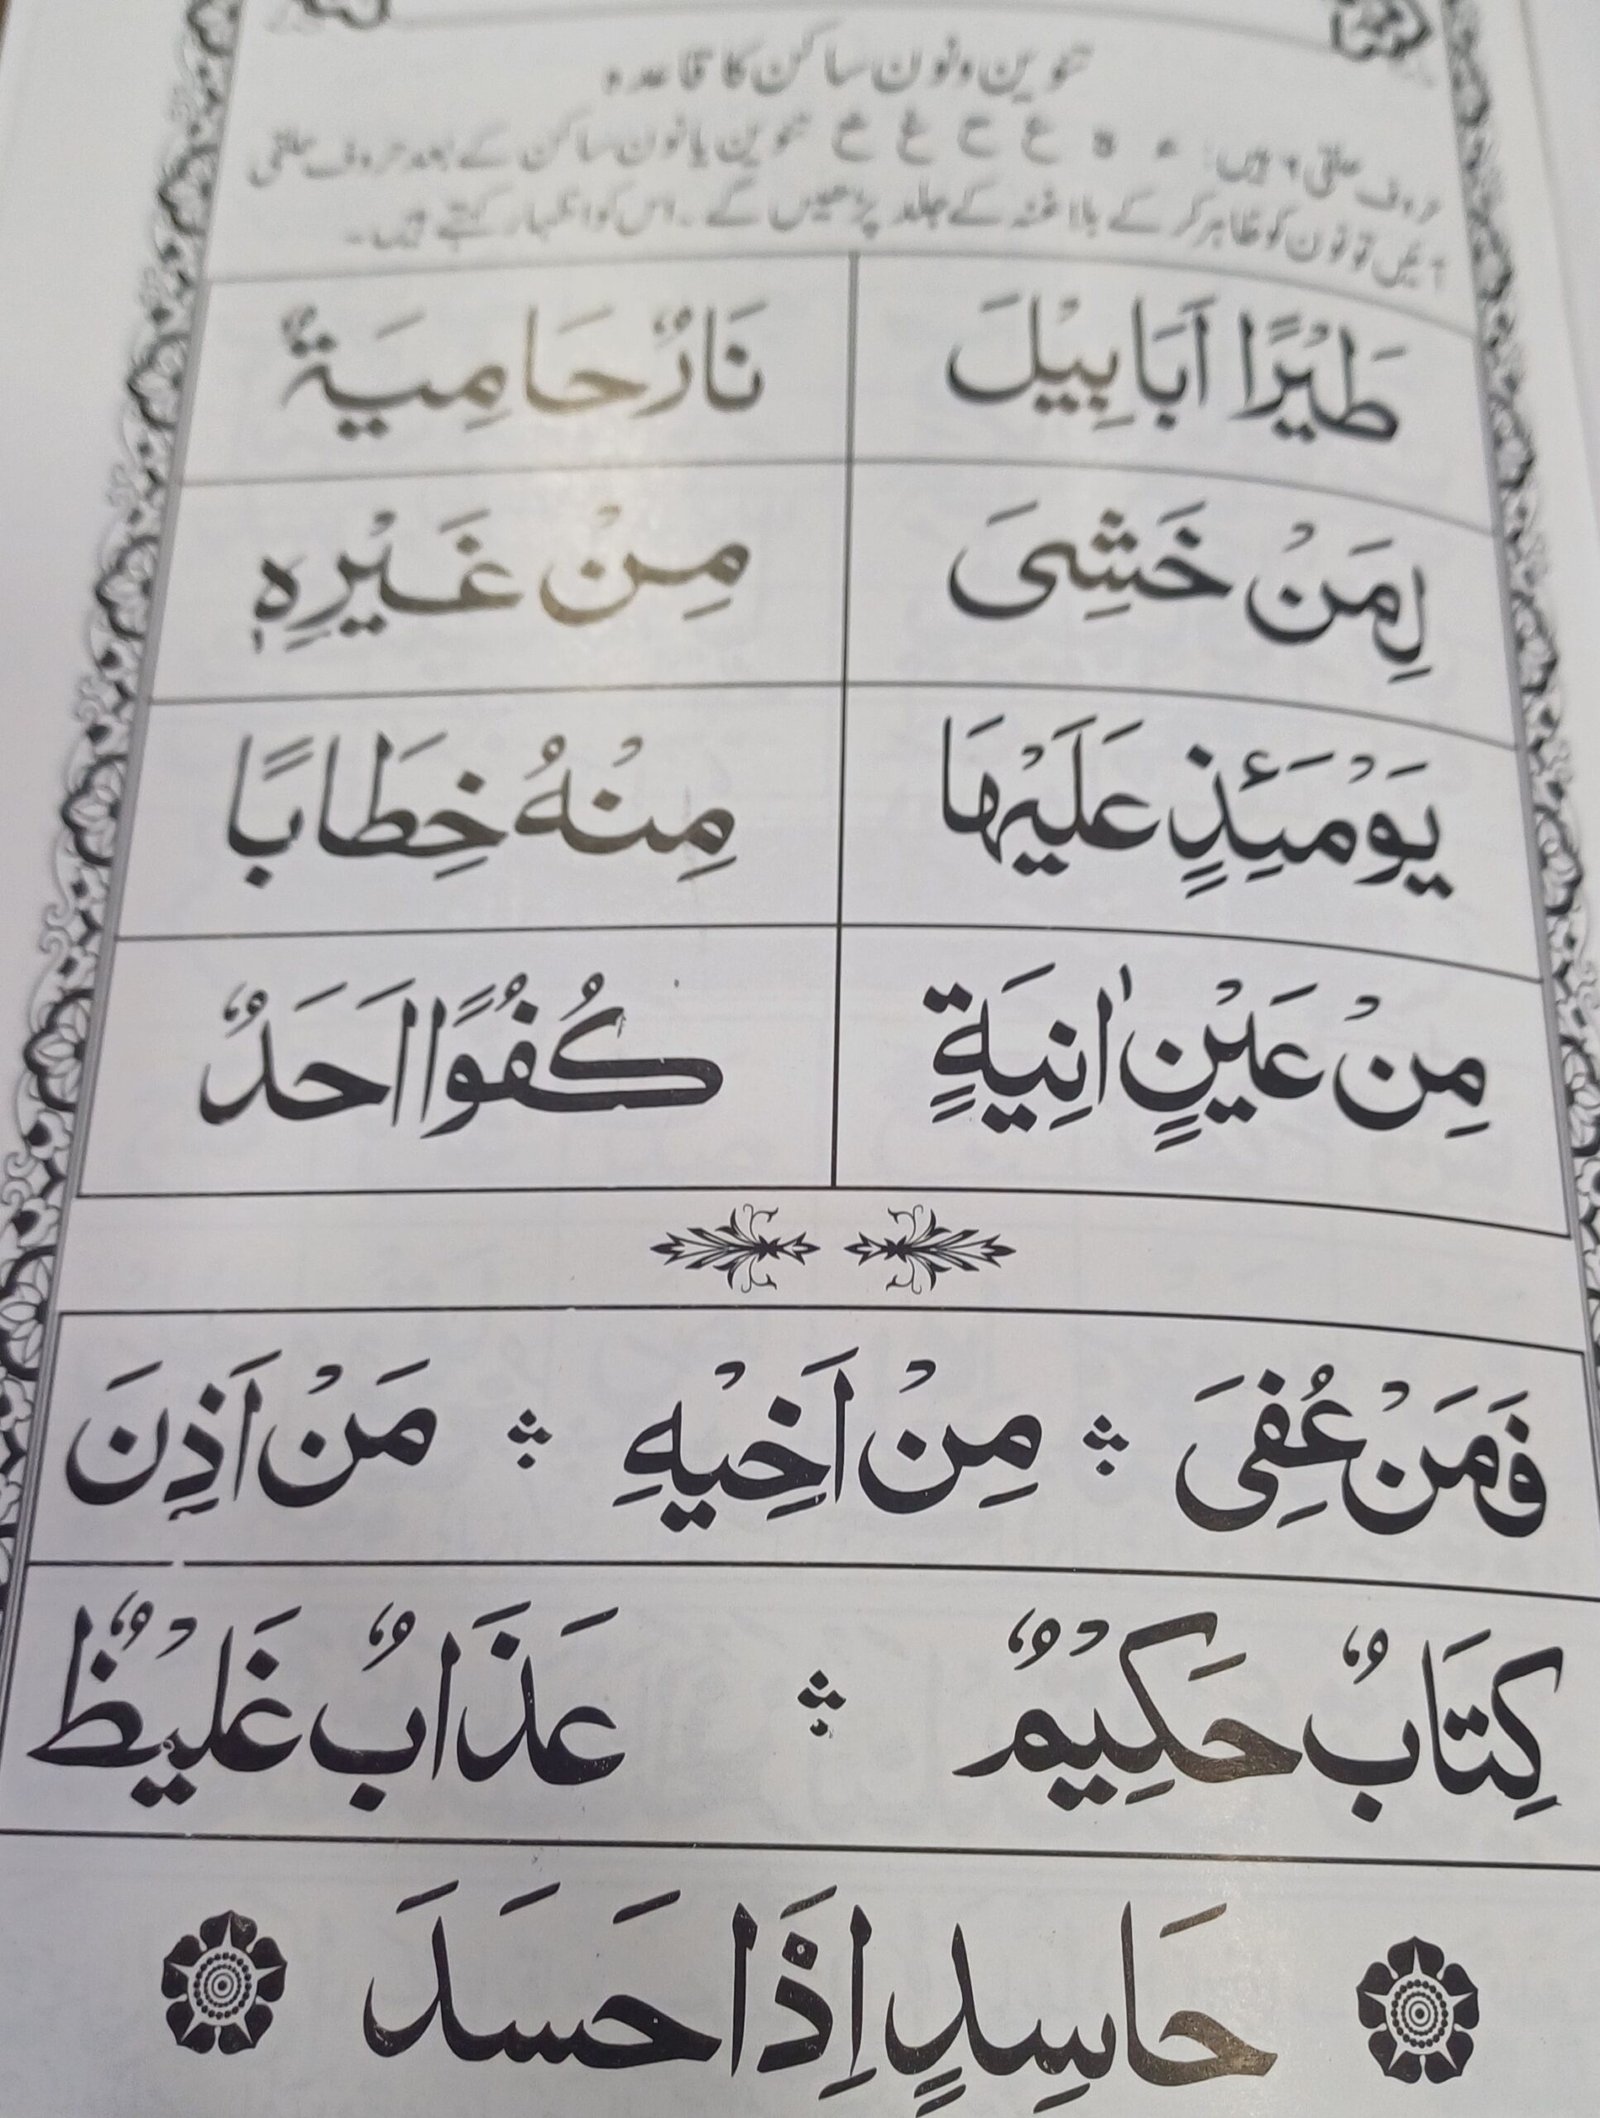 تنوین و نون ساکن کا قاعدہ
حروف حلقی ۶ ہیں: ء ہ ع ح غ خ تنوین یا نون ساکن کے بعد حروف حلقی
آئیں تو نون کو ظاہر کر کے بلا غنہ کے جلد پڑھیں گے۔ اس کو اظہار کہتے ہیں۔
طَيْرًا اَبَابِيْلَ نَارٌ حَامِيَةٌ
لِمَنْ خَشِىَ مِنْ غَيْرِهٖ
يَوْمَئِذٍ عَلَيْهَا مِنْهُ خِطَابًا
مِنْ عَيْنٍ اٰنِيَةٍ كُفُوًا اَحَدٌ
فَمَنْ عُفِىَ ۛ مِنْ اَخِيْهِ ۛ مَنْ اَذِنَ
كِتَابٌ حَكِيْمٌ ۛ عَذَابٌ غَلِيْظٌ
حَاسِدٍ اِذَا حَسَدَ